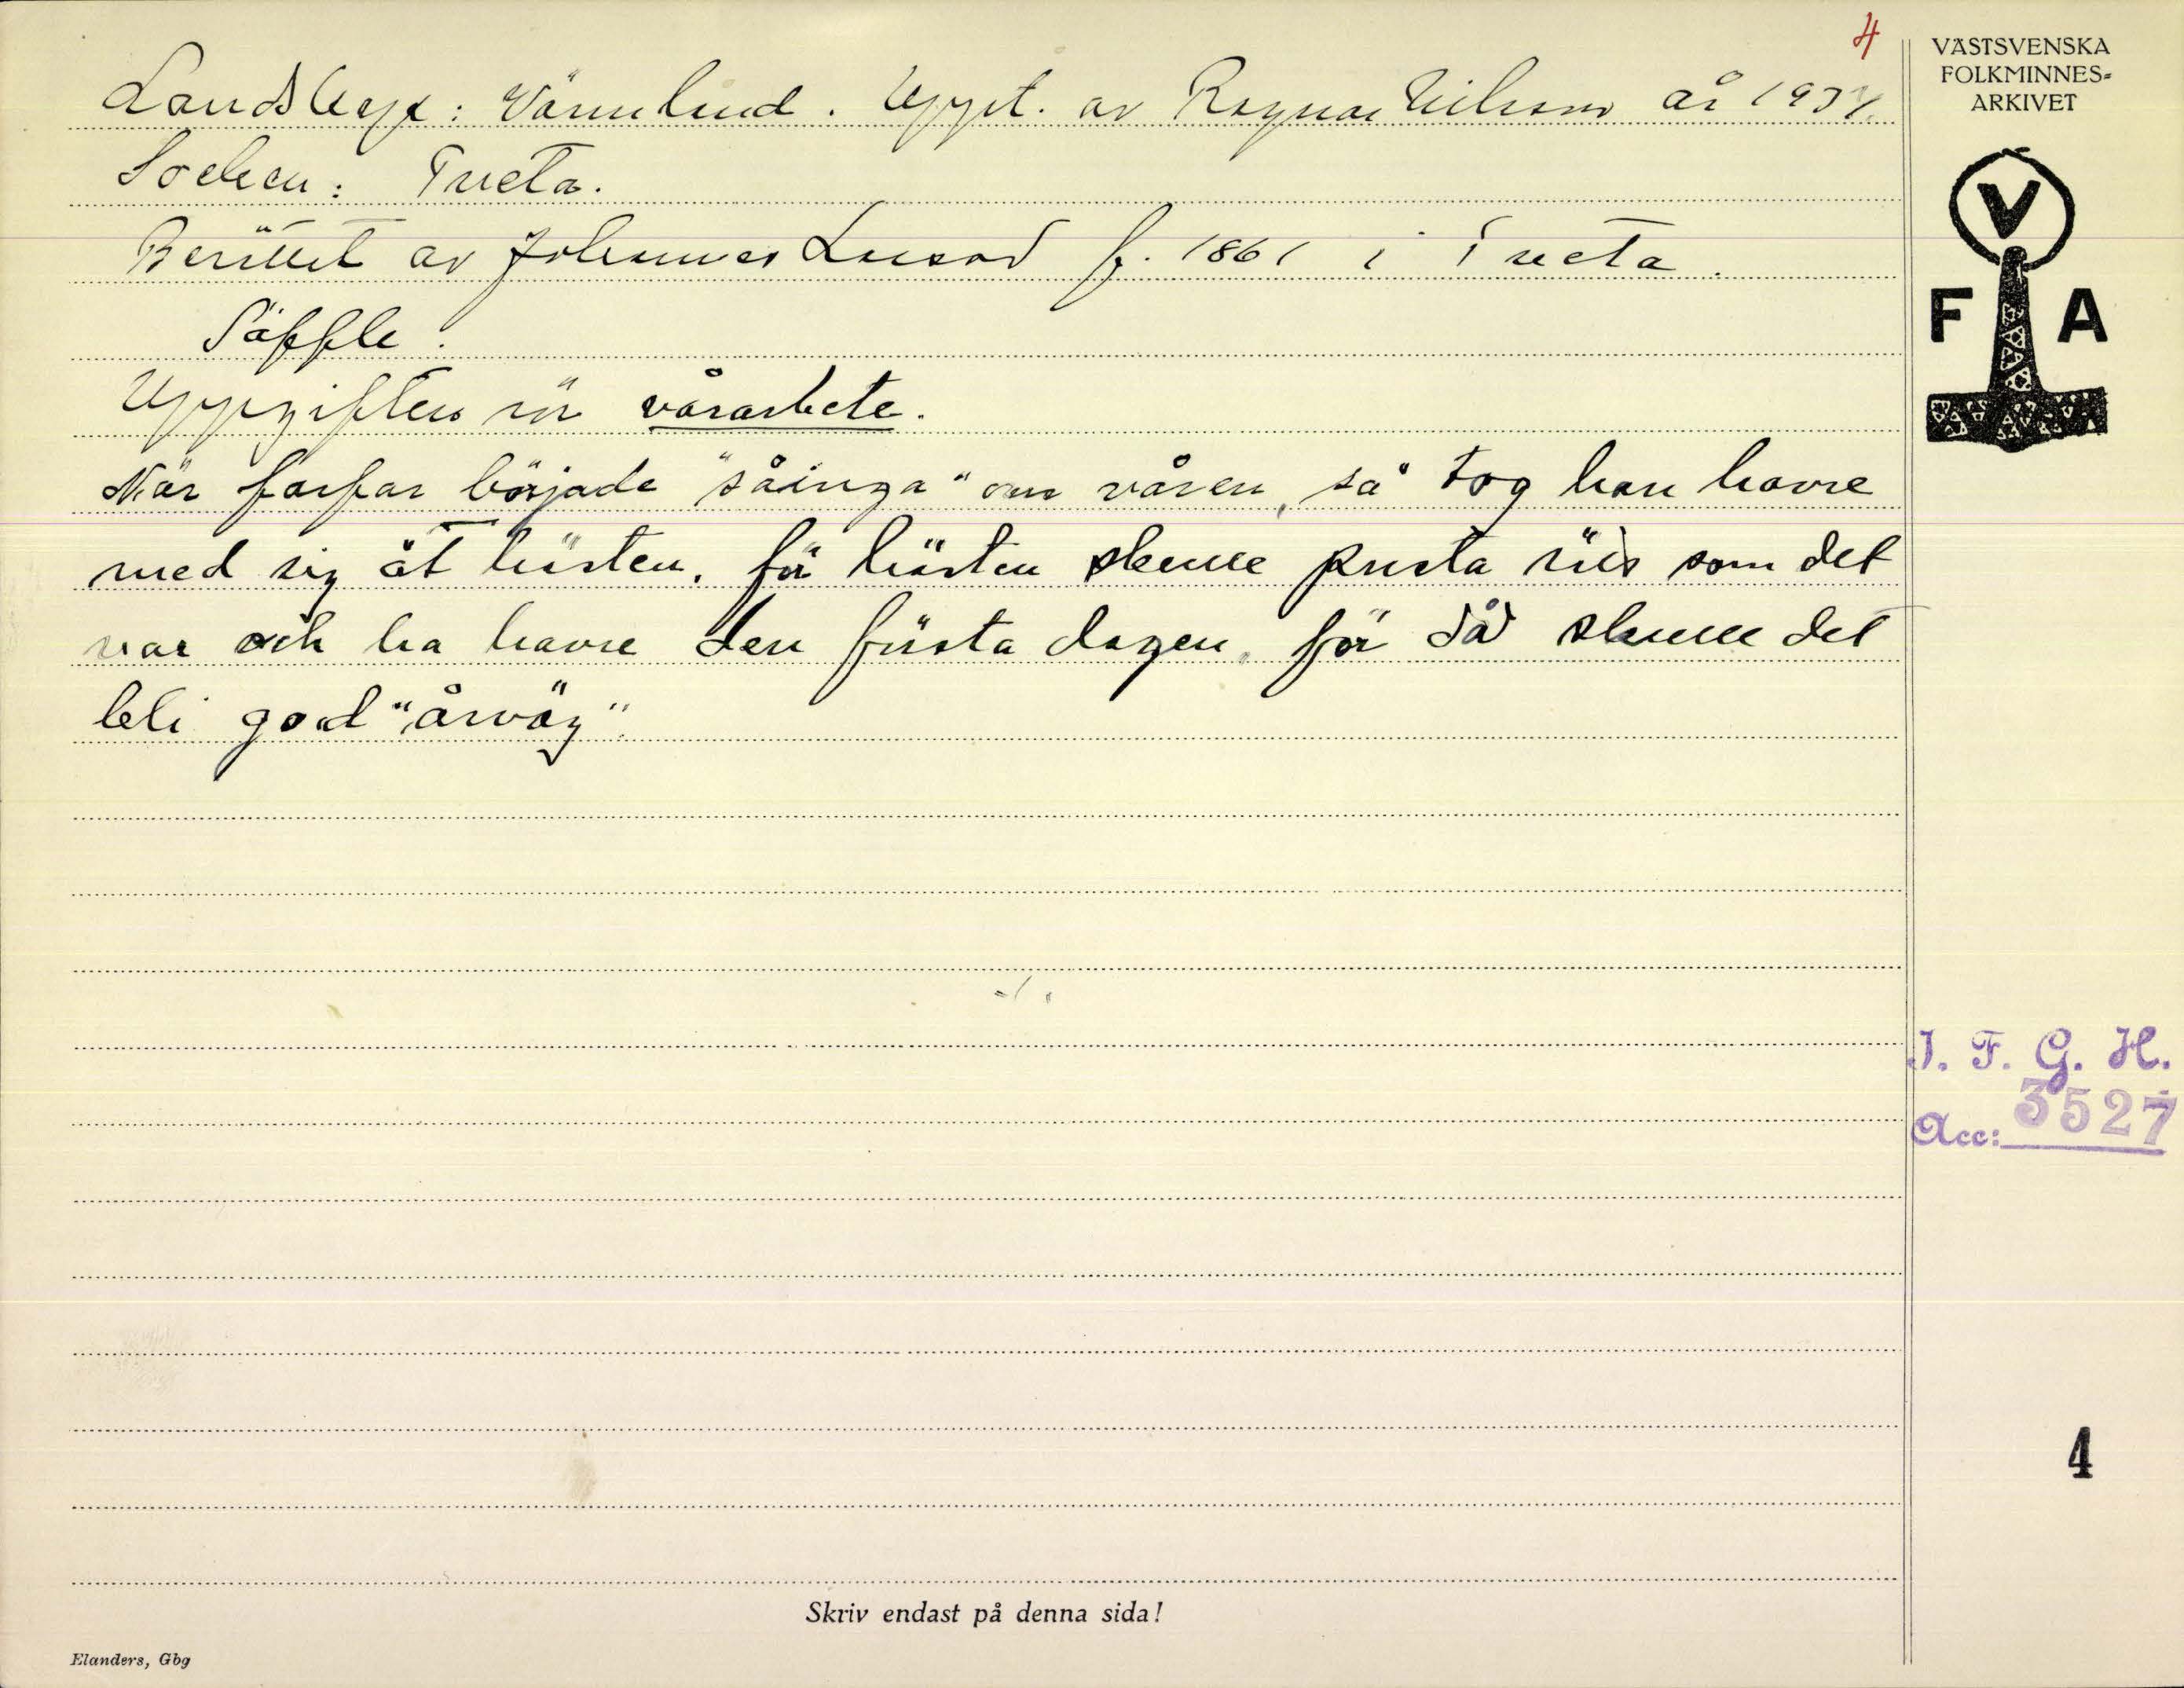 4
Landskap: Värmland. Uppt. av Ragnar Nilsson år 193
Socken: Tveta.
Berättat av Johannes Larsson f. 1861 i Tveta.
Säffle.
Uppgiften rör vårarbete.
När farfar började "såinga" om våren, så tog han havre
med sig åt hästen, för hästen skulle pusta som det
var och ha havre den första dagen, för då skulle det
bli god "årväg".
Skriv endast på denna sida!
Elanders, Gbg
VÄSTSVENSKA
FOLKMINNES-
ARKIVET
V
F A
I. F. G. H.
Acc: 3527
4